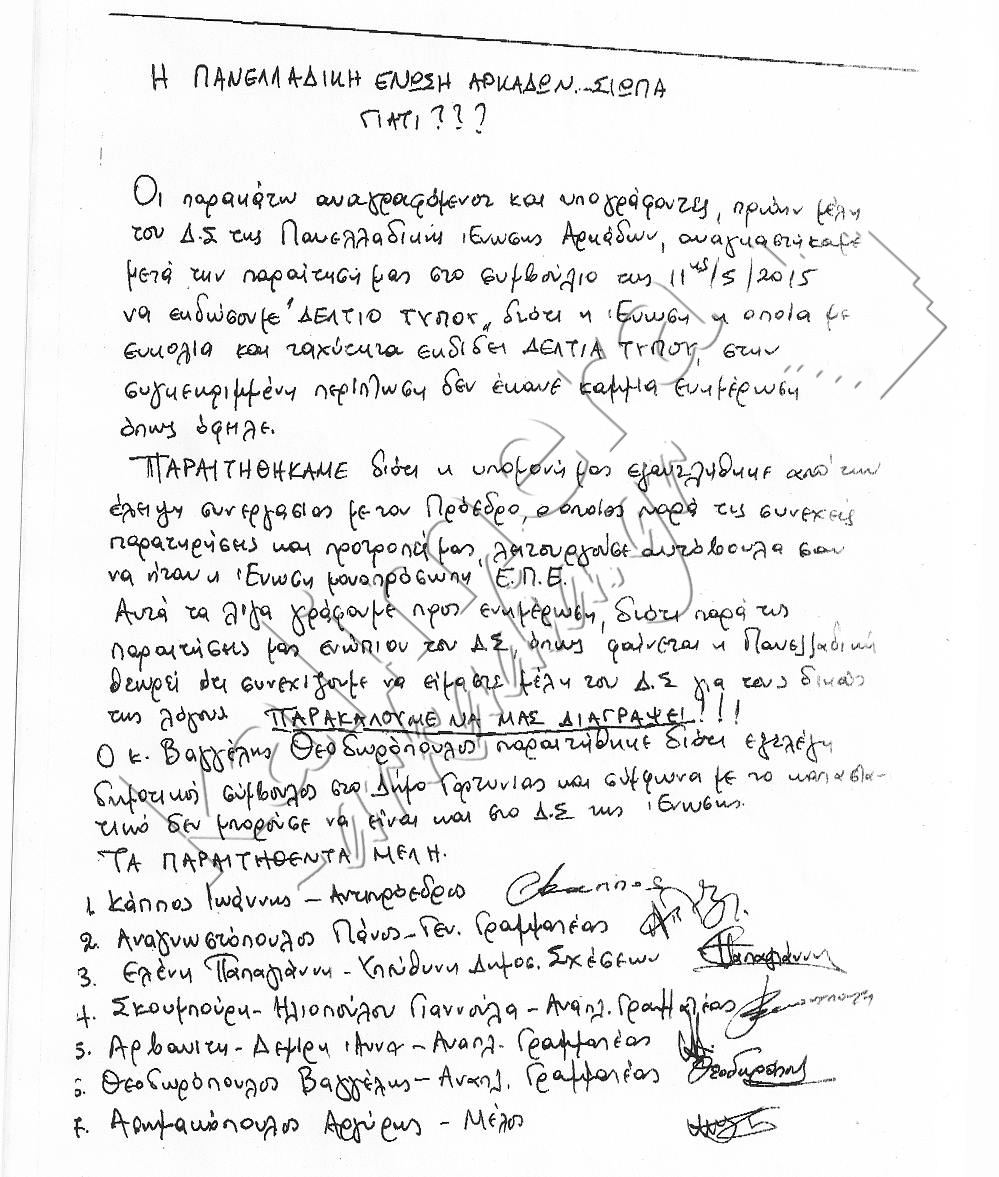 Η ΠΑΝΕΛΛΑΔΙΚΗ ΕΝΩΣΗ ΑΡΚΑΔΩΝ.-ΣΙΩΠΑ
ΓΙΑΤΙ???
Οι παρακάτω αναγραφόμενοι και υπογράφοντες, πρώην μέλη
του Δ.Σ της Πανελλαδικής Ένωσης Αρκάδων, αναγκαστήκαμε
μετά την παραίτησή μας στο συμβούλιο της 11ης/5/2015
να εκδώσουμε "ΔΕΛΤΙΟ ΤΥΠΟΥ" διότι η Ένωση η οποία με
ευκολία και ταχύτητα εκδίδει ΔΕΛΤΙΑ ΤΥΠΟΥ, στην
συγκεκριμμένη περίπτωση δεν έκανε καμμία ενημέρωση
όπως όφηλε.
ΠΑΡΑΙΤΗΘΗΚΑΜΕ διότι η υπομονή μας εξαντλήθηκε από την
έλειψη συνεργασίας με τον Πρόεδρο, ο οποίος παρά τις συνεχείς
παρατηρήσεις και προτροπές μας, λειτουργούσε αυτόβουλα σαν
να ήταν η Ένωση μονοπρόσωπη Ε.Π.Ε.
Αυτά τα λίγα γράφουμε προς ενημέρωση, διότι παρά τις
παραιτήσεις μας ενώπιον του Δ.Σ, όπως φαίνεται η Πανελλαδική
θεωρεί ότι συνεχίζουμε να είμαστε μέλη του Δ.Σ για τους δικούς
της λόγους ΠΑΡΑΚΑΛΟΥΜΕ ΝΑ ΜΑΣ ΔΙΑΓΡΑΨΕΙ!!!
Ο κ. Βαγγέλης Θεοδωρόπουλος παραιτήθηκε διότι εξελέγη
δημοτικός σύμβουλος στο Δήμο Γορτυνίας και σύμφωνα με το καταστα-
τικό δεν μπορούσε να είναι και στο Δ.Σ της Ένωσης.
ΤΑ ΠΑΡΑΙΤΗΘΕΝΤΑ ΜΕΛΗ.
1. Κάππος Ιωάννης - Αντιπρόεδρος Καππος
2. Αναγνωστόπουλος Πάνος - Γεν. Γραμματέας
3. Ελένη Παπαγιάννη - Υπεύθυνη Δημοσ. Σχέσεων Παπαγιάννη
4. Σκουμπούρη - Ηλιοπούλου Γιαννούλα - Αναπλ. Γραμματέας
5. Αρβανίτη - Δεμίρη Άννα - Αναπλ. Γραμματέας
6. Θεοδωρόπουλος Βαγγέλης - Αναπλ. Γραμματέας
7. Ασημακόπουλος Αργύρης - Μέλος